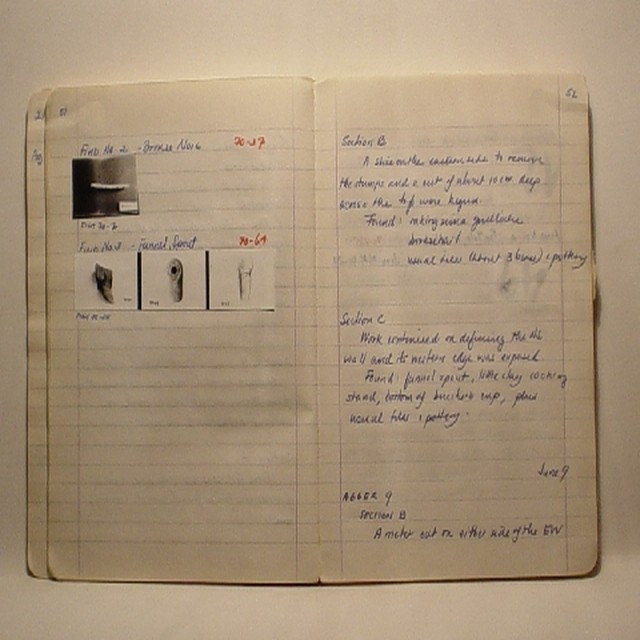 51
Find No. 2 - Bronze No 6 70-27
Find No 8 - Funnel Spout 70-69
52
Section B
A slice on the eastern side to remove
the dumps and a cut of about 10 cm. deep
across the top were begun.
Found:
usual tiles (about 3 boxes) & pottery
Section C
Work continued on defining the NS
wall and its western edge was exposed.
Found: funnel spout, little clay cooking
stand, bottom of bucchero cup, plus
usual tiles & pottery.
June 9
AGGER 9
Section B
A meter cut on either side of the EW